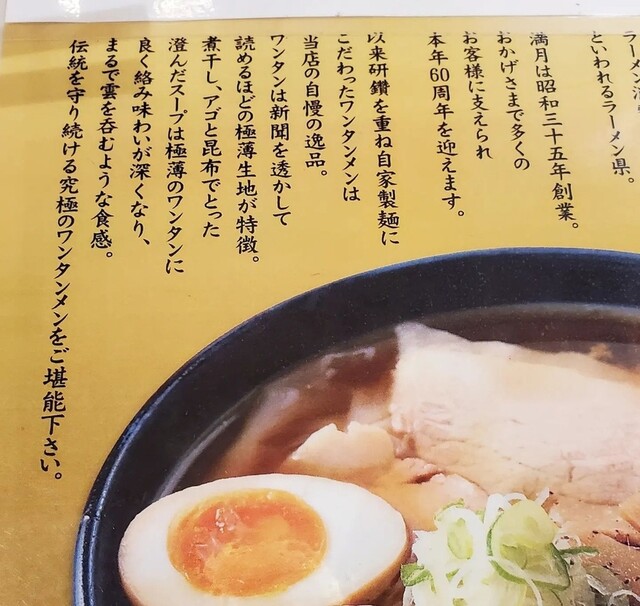 といわれるラーメン県。
満月は昭和三十五年創業。
おかげさまで多くの
お客様に支えられ
本年60周年を迎えます。
以来研鑽を重ね自家製麺に
こだわったワンタンメンは
当店の自慢の逸品。
ワンタンは新聞を透かして
読めるほどの極薄生地が特徴。
煮干し、アゴと昆布でとった
澄んだスープは極薄のワンタンに
良く絡み味わいが深くなり、
まるで雲を呑むような食感。
伝統を守り続ける究極のワンタンメンをご堪能下さい。